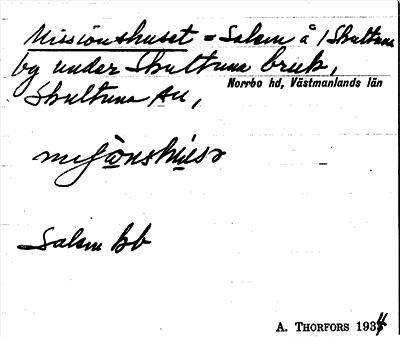 Missionshuset = Salem å 1 Skultuna
by under Skultuna bruk,
Norrbo hd, Västmanlands län
Skultuna AU,
Salem bb
A. THORFORS 1934